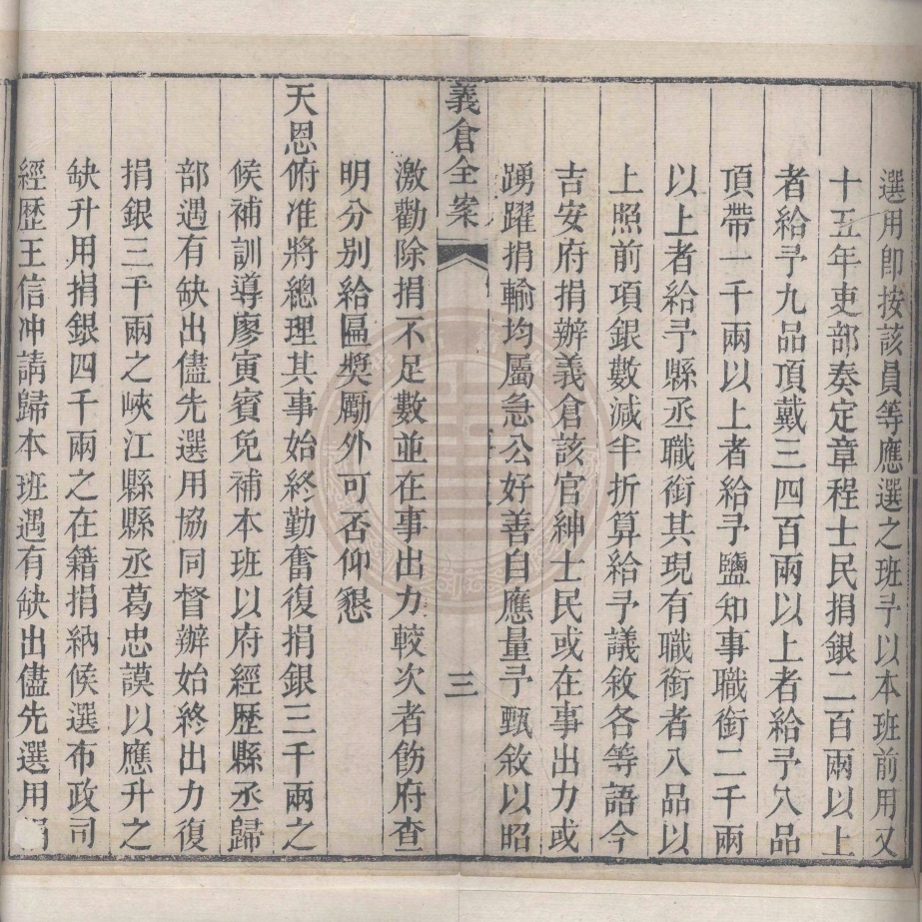 選用卽按該員等應選之班予以本班前用又
十五年吏部奏定章程士民捐銀二百兩以上
者給予九品頂戴三四百兩以上者給予八品
頂帶一千兩以上者給予鹽知事職銜二千兩
以上者給予縣丞職銜其現有職銜者八品以
上照前項銀數減半折算給予議敘各等語今
吉安府捐辦義倉該官紳士民或在事出力或
踴躍捐輸均屬急公好善自應量予甄敘以昭
義倉全案 三
激勸除捐不足數並在事出力較次者飭府查
明分別給匾奬勵外可否仰懇
天恩俯准將總理其事始終勤奮復捐銀三千兩之
候補訓導廖寅賓免補本班以府經歴縣丞歸
部遇有缺出儘先選用協同督辦始終出力復
捐銀三千兩之峽江縣縣丞葛忠謨以應升之
缺升用捐銀四千兩之在籍捐納候選布政司
經歴王信冲請歸本班遇有缺出儘先選用捐